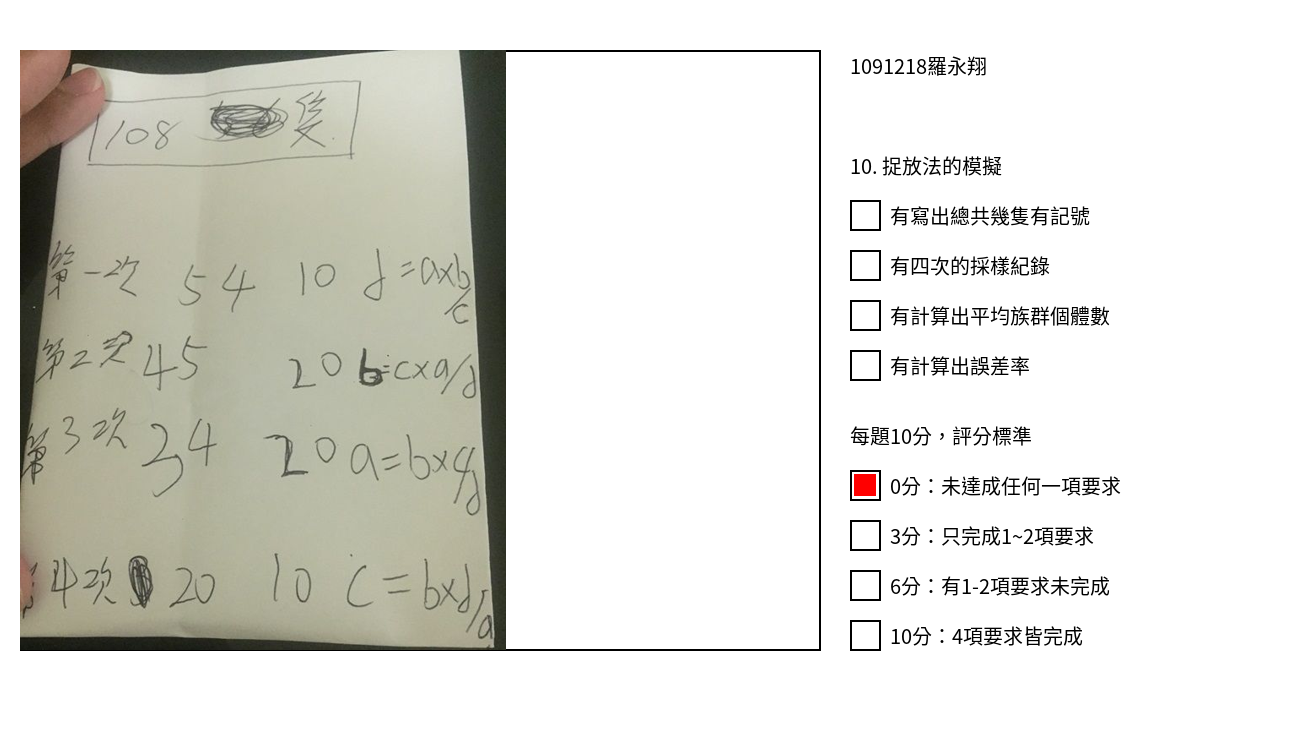 108 隻
第一次 54 10 d=axb/c
第2次 45 20 b=cxa/d
第3次 34 20 a=bxc/d
4次 20 10 c=bxd/a
1091218羅永翔
10. 捉放法的模擬
有寫出總共幾隻有記號
有四次的採樣紀錄
有計算出平均族群個體數
有計算出誤差率
每題10分，評分標準
0分：未達成任何一項要求
3分：只完成1~2項要求
6分：有1-2項要求未完成
10分：4項要求皆完成